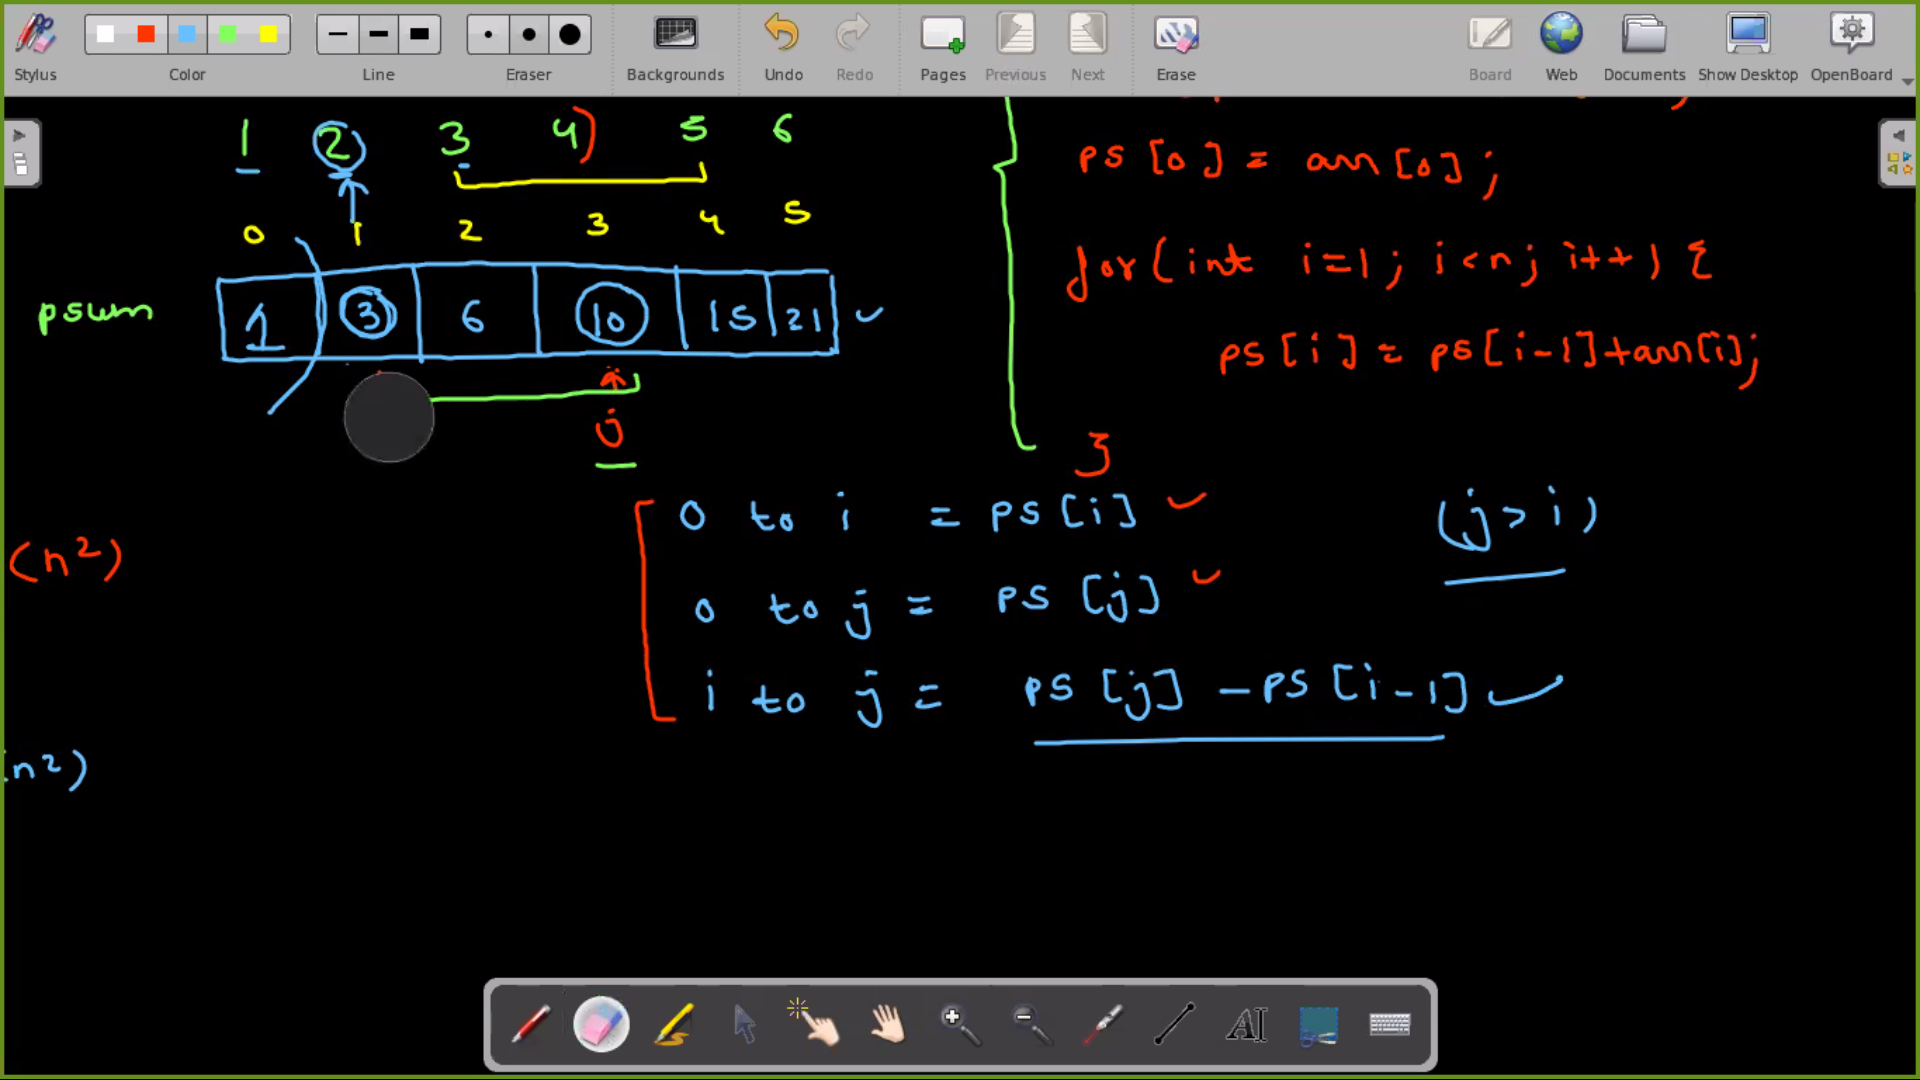 Stylus Color Line Eraser Backgrounds Undo Redo Pages Previous Next Erase Board Web Documents Show Desktop OpenBoard
1 2 3 4) 5 6
0 1 2 3 4 5
psum 1 3 6 10 15 21
j
ps[0] = arr[0];
for(int i=1; i<n; i++) {
ps[i] = ps[i-1]+arr[i];
}
0 to i = ps[i]
(j > i)
(n²)
0 to j = ps[j]
i to j = ps[j] - ps[i-1]
(n²)
AI